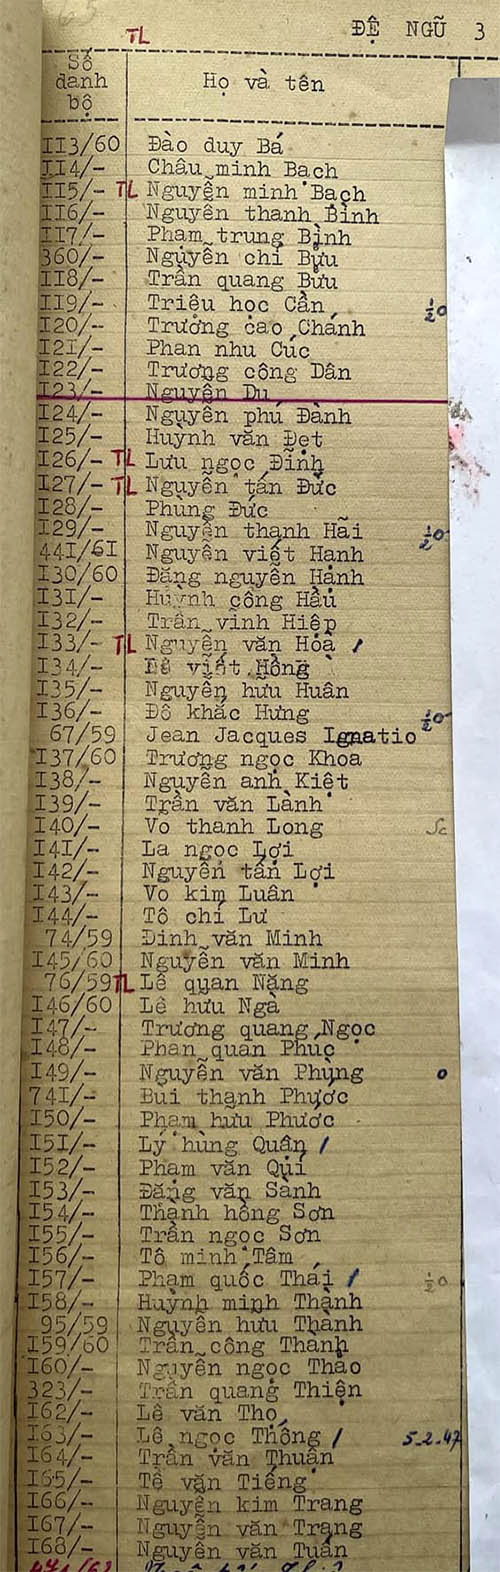 65
TL
ĐỆ NGŨ 3
Số danh bộ Họ và tên
II3/60 Đào duy Bá
II4/- Châu minh Bạch
II5/- TL Nguyễn minh Bạch
II6/- Nguyễn thanh Bình
II7/- Phạm trung Bình
360/- Nguyễn chí Bửu
II8/- Trần quang Bửu
II9/- Triệu học Cần ½0
I20/- Trương cao Chánh
I2I/- Phan nhu Cúc
I22/- Trương công Dân
I23/- Nguyễn Du
I24/- Nguyễn phú Đành
I25/- Huỳnh văn Đẹt
I26/- TL Lưu ngọc Đĩnh
I27/- TL Nguyễn tấn Đức
I28/- Phùng Đức
I29/- Nguyễn thanh Hãi ½0
44I/6I Nguyễn viết Hạnh
I30/60 Đặng nguyễn Hạnh
I3I/- Huỳnh công Hầu
I32/- Trần vĩnh Hiệp
I33/- TL Nguyễn văn Hoà /
I34/- Lê viết Hồng
I35/- Nguyễn hữu Huân
I36/- Đỗ khắc Hưng ½0
67/59 Jean Jacques Ignatio
I37/60 Trương ngọc Khoa
I38/- Nguyễn anh Kiệt
I39/- Trần văn Lành
I40/- Vo thanh Long Sc
I4I/- La ngọc Lợi
I42/- Nguyễn tấn Lợi
I43/- Vo kim Luân
I44/- Tô chí Lư
74/59 Đinh văn Minh
I45/60 Nguyễn văn Minh
76/59 TL Lê quan Năng
I46/60 Lê hữu Ngà
I47/- Trương quang Ngọc
I48/- Phan quan Phúc
I49/- Nguyễn văn Phùng 0
74I/- Bùi thanh Phước
I50/- Phạm hữu Phước
I5I/- Lý hùng Quân /
I52/- Phạm văn Quí
I53/- Đặng văn Sành
I54/- Thạnh hồng Sơn
I55/- Trần ngọc Sơn
I56/- Tô minh Tâm
I57/- Phạm quốc Thái / ½0
I58/- Huỳnh minh Thành
95/59 Nguyễn hữu Thành
I59/60 Trần công Thành
I60/- Nguyễn ngọc Thảo
323/- Trần quang Thiện
I62/- Lê văn Thọ
I63/- Lê ngọc Thống / 5.2.47
I64/- Trần văn Thuận
I65/- Tề văn Tiếng
I66/- Nguyễn kim Trang
I67/- Nguyễn văn Trạng
I68/- Nguyễn văn Tuấn